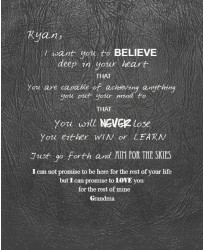 Ryan,
I want you to BELIEVE
deep in your heart
THAT
You are capable of achieving anything
you put your mind to
THAT
You will NEVER lose
You either WIN or LEARN
Just go forth and AIM FOR THE SKIES
I can not promise to be here for the rest of your life
but I can promise to LOVE you
for the rest of mine
Grandma